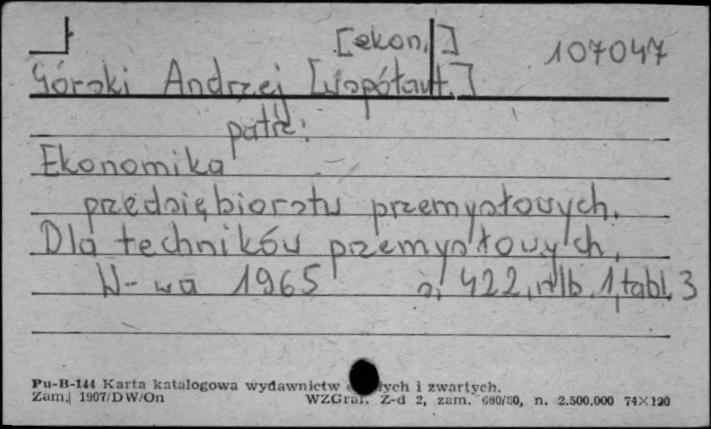 [ekon.]
107047
Górski Andrzej [współaut.]
patrz:
Ekonomika
przedsiębiorstw przemysłowych.
Dla techników przemysłowych.
W-wa 1965 s. 422, nlb. 1, tabl. 3
Pu-B-144 Karta katalogowa wydawnictw i zwartych.
Zam. 1907/DW/On WZGraf. Z-d 2, zam. 680/80, n. 2.500.000 74×120